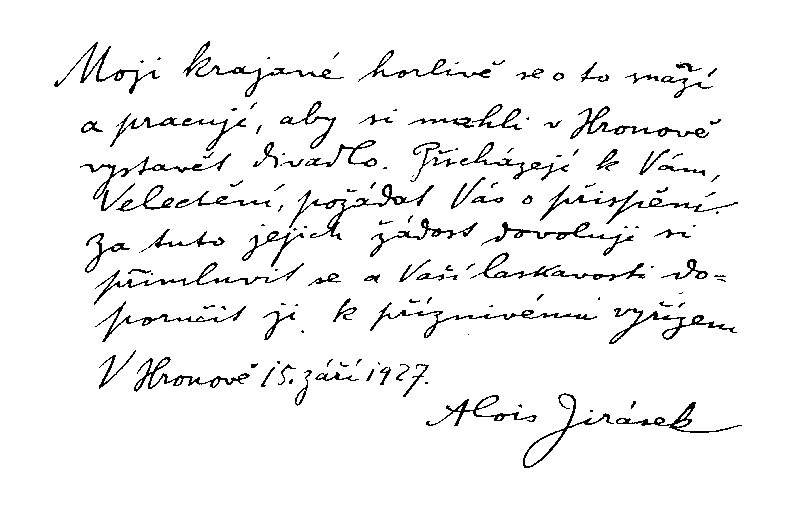 Moji krajané horlivě se o to snaží
a pracují, aby si mohli v Hronově
vystavět divadlo. Přicházejí k Vám,
Velectění, požádat Vás o přispění.
Za tuto jejich žádost dovoluji si
přimluvit se a Vaší laskavosti do=
poručit ji k příznivému vyřízení
V Hronově 15. září 1927.
Alois Jirásek